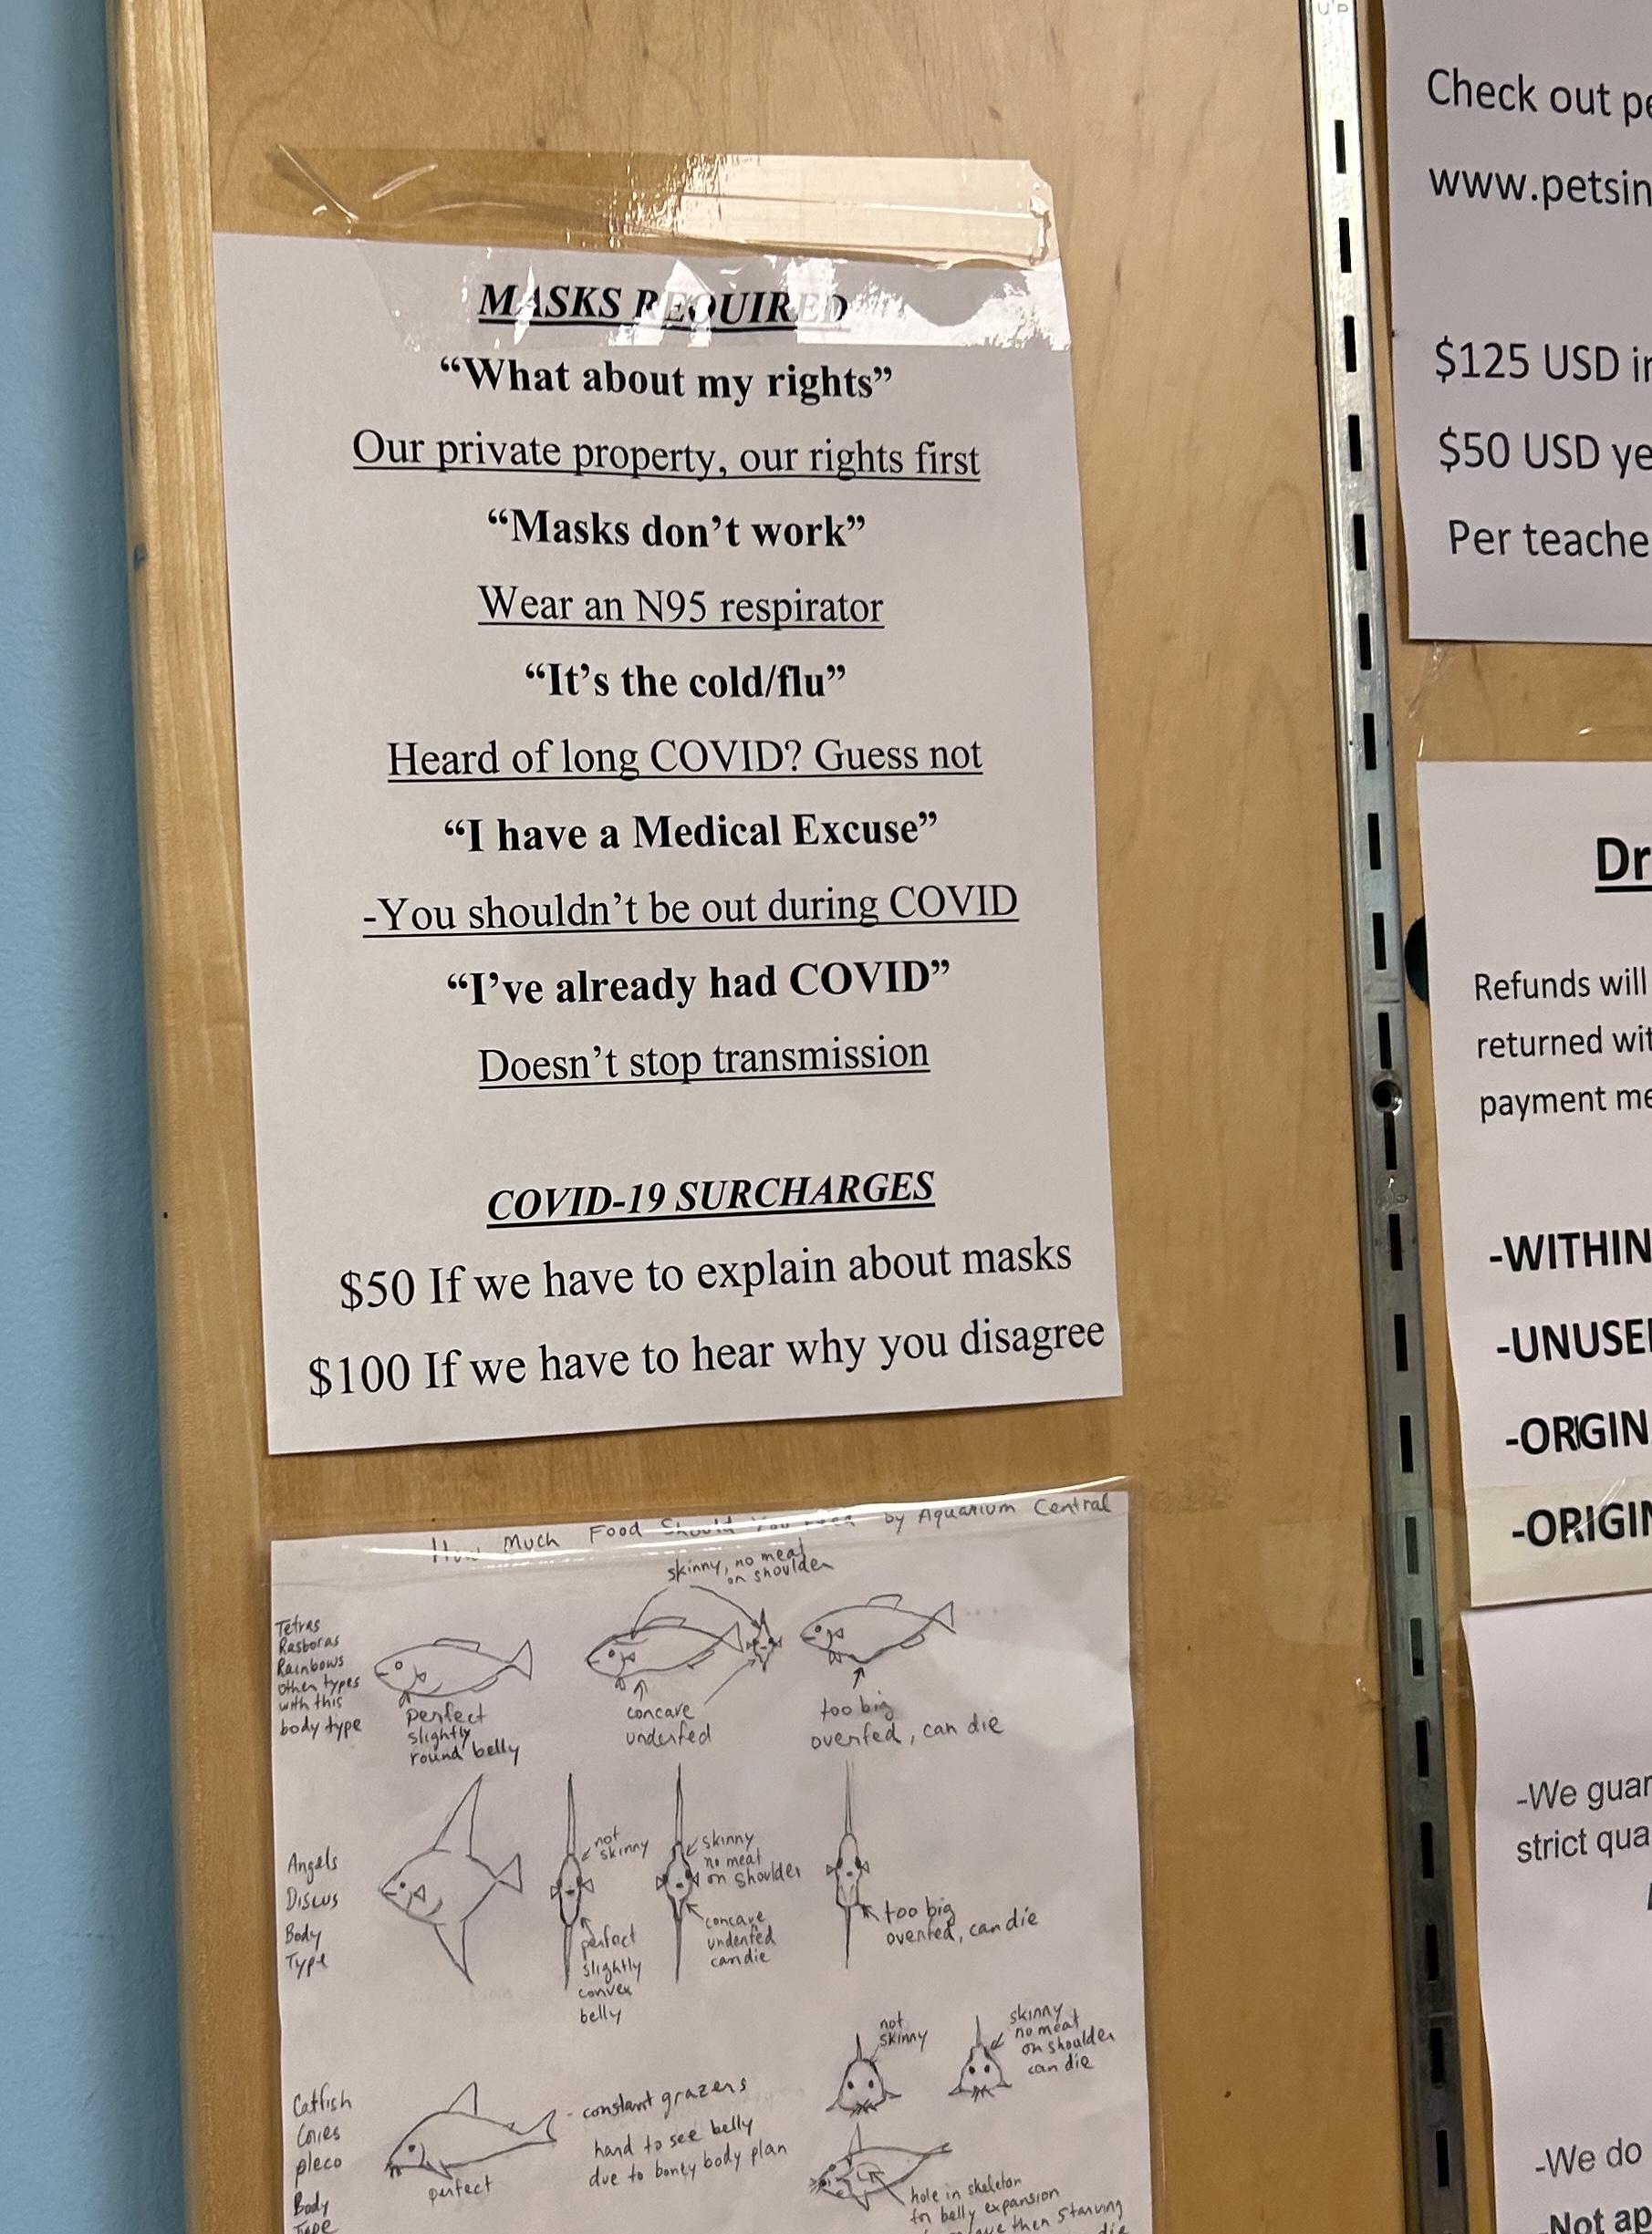 MASKS REQUIRED
“What about my rights”
Our private property, our rights first
“Masks don’t work”
Wear an N95 respirator
“It’s the cold/flu”
Heard of long COVID? Guess not
“I have a Medical Excuse”
-You shouldn’t be out during COVID
“I’ve already had COVID”
Doesn’t stop transmission
COVID-19 SURCHARGES
$50 If we have to explain about masks
$100 If we have to hear why you disagree
How Much Food Should You Feed by Aquarium Central
skinny, no meat
on shoulder
Tetras
Rasboras
Rainbows
other types
with this
body type
perfect
slightly
round belly
concave
underfed
too big
overfed, can die
Angels
Discus
Body
Type
not
skinny
perfect
slightly
convex
belly
skinny
no meat
on shoulder
concave
underfed
can die
too big
overfed, can die
Catfish
Cories
pleco
Body
Type
perfect
- constant grazers
hard to see belly
due to boney body plan
not
skinny
skinny
no meat
on shoulder
can die
hole in skeleton
for belly expansion
then starving
die
Check out
www.petsin
$125 USD
$50 USD
Per teache
Dr
Refunds will
returned
payment
-WITHIN
-UNUSE
-ORIGIN
-ORIGIN
-We guar
strict qua
-We do
-Not ap